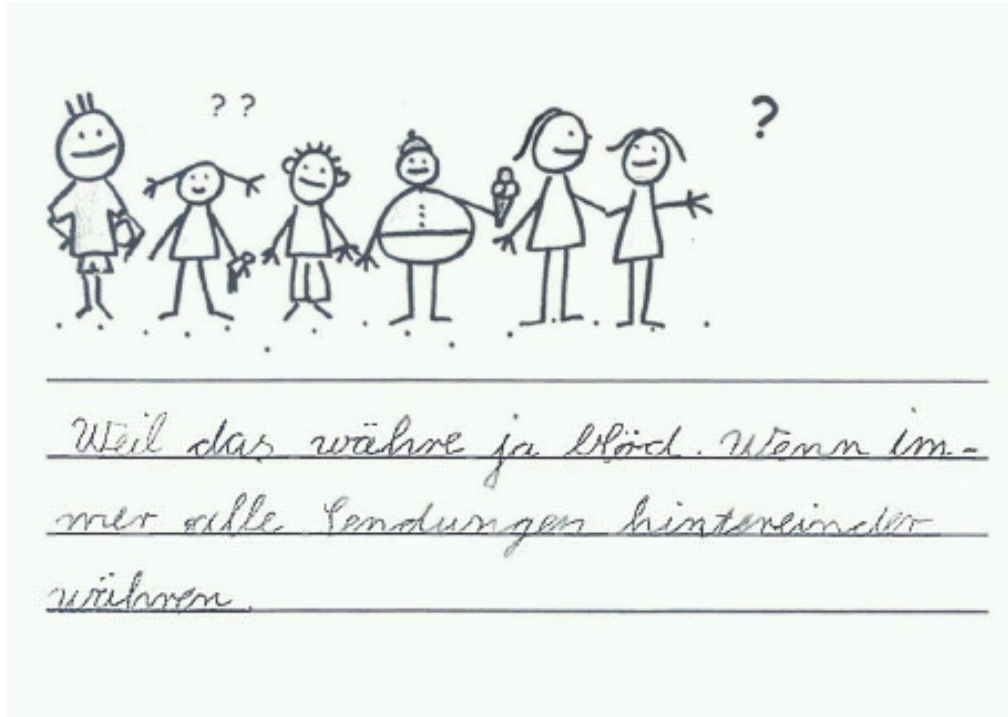 ? ?
?
Weil das währe ja blöd. Wenn im-
mer alle Sendungen hintereinder
währen.